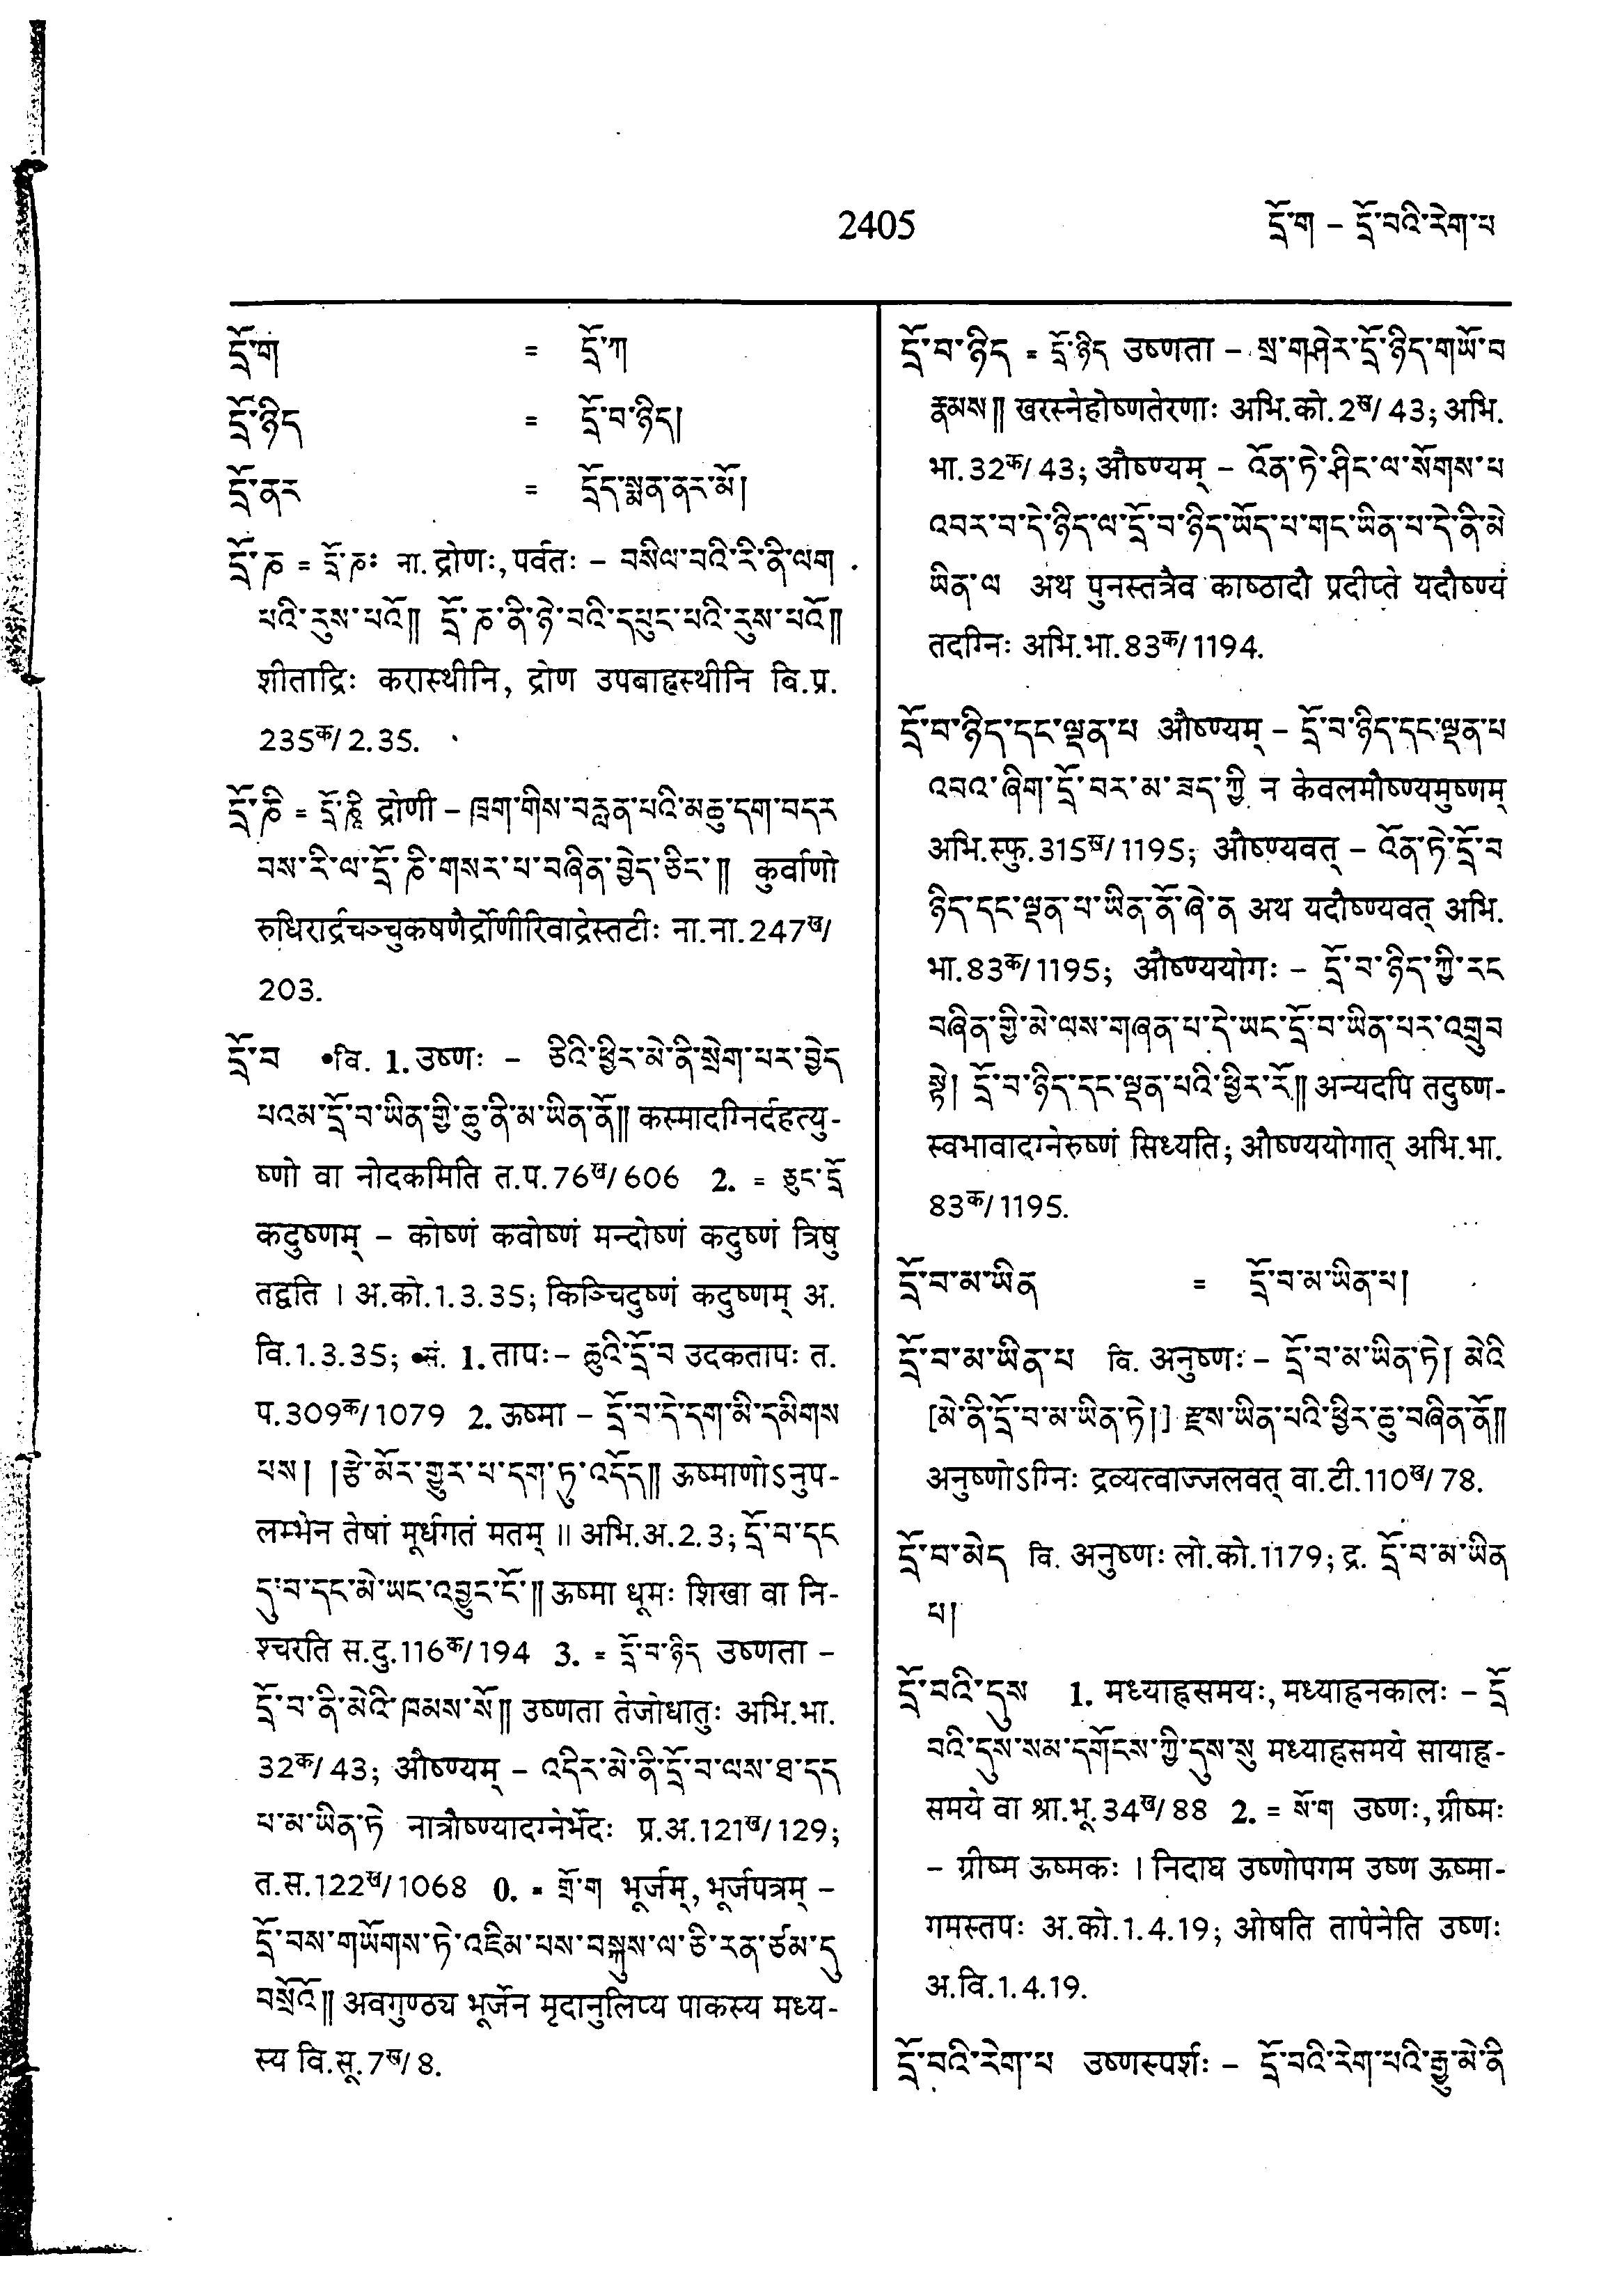 2405
དྲོ་ག – དྲོ་བའི་རེག་པ
དྲོ་ག = དྲོ་ཀ
དྲོ་ཉིད = དྲོ་བ་ཉིད།
དྲོ་ནར = དྲོད་སྨན་ནར་མོ།
དྲོ་ཎ = དྲོ་ཎཿ ना. द्रोणः, पर्वतः – བསིལ་བའི་རི་ནི་ལག
པའི་རུས་པའོ༎ དྲོ་ཎ་ནི་ཉེ་བའི་དཔུང་པའི་རུས་པའོ༎
शीताद्रिः करास्थीनि, द्रोण उपबाह्वस्थीनि वि.प्र.
235क/2.35.
དྲོ་ཎི = དྲོ་ཎཱི द्रोणी – ཁྲག་གིས་བརླན་པའི་མཆུ་དག་བདར
བས་རི་ལ་དྲོ་ཎི་གསར་པ་བཞིན་བྱེད་ཅིང་༎ कुर्वाणो
रुधिरार्द्रचञ्चुकषणैर्द्रोणीरिवाद्रेस्तटीः ना.ना.247ख/
203.
དྲོ་བ •वि. 1. उष्णः – ཅིའི་ཕྱིར་མེ་ནི་སྲེག་པར་བྱེད
པའམ་དྲོ་བ་ཡིན་གྱི་ཆུ་ནི་མ་ཡིན་ནོ༎ कस्मादग्निर्दहत्यु-
ष्णो वा नोदकमिति त.प.76ख/606 2. = ཅུང་དྲོ
कदुष्णम् – कोष्णं कवोष्णं मन्दोष्णं कदुष्णं त्रिषु
तद्वति । अ.को.1.3.35; किञ्चिदुष्णं कदुष्णम् अ.
वि.1.3.35; •सं. 1. तापः – ཆུའི་དྲོ་བ उदकतापः त.
प.309क/1079 2. ऊष्मा – དྲོ་བ་དེ་དག་མི་དམིགས
པས། །རྩེ་མོར་གྱུར་པ་དག་ཏུ་འདོད༎ ऊष्माणोऽनुप-
लम्भेन तेषां मूर्धगतं मतम् ॥ अभि.अ.2.3; དྲོ་བ་དང
དུ་བ་དང་མེ་ཡང་འབྱུང་ངོ་༎ ऊष्मा धूमः शिखा वा नि-
श्चरति स.दु.116क/194 3. = དྲོ་བ་ཉིད उष्णता –
དྲོ་བ་ནི་མེའི་ཁམས་སོ༎ उष्णता तेजोधातुः अभि.भा.
32क/43; औष्ण्यम् – འདིར་མེ་ནི་དྲོ་བ་ལས་ཐ་དད
པ་མ་ཡིན་ཏེ नात्रौष्ण्यादग्नेर्भेदः प्र.अ.121ख/129;
त.स.122ख/1068 0. = གྲོ་ག भूर्जम्, भूर्जपत्रम् –
དྲོ་བས་གཡོགས་ཏེ་འཇིམ་པས་བསྐུས་ལ་ཅི་རན་ཙམ་དུ
བསྲོའོ༎ अवगुण्ठ्य भूर्जेन मृदानुलिप्य पाकस्य मध्य-
स्य वि.सू.7ख/8.
དྲོ་བ་ཉིད = དྲོ་ཉིད उष्णता – སྲ་གཤེར་དྲོ་ཉིད་གཡོ་བ
རྣམས༎ खरस्नेहोष्णतेरणाः अभि.को.2ख/43; अभि.
भा.32क/43; औष्ण्यम् – འོན་ཏེ་ཤིང་ལ་སོགས་པ
འབར་བ་དེ་ཉིད་ལ་དྲོ་བ་ཉིད་ཡོད་པ་གང་ཡིན་པ་དེ་ནི་མེ
ཡིན་ལ अथ पुनस्तत्रैव काष्ठादौ प्रदीप्ते यदौष्ण्यं
तदग्निः अभि.भा.83क/1194.
དྲོ་བ་ཉིད་དང་ལྡན་པ औष्ण्यम् – དྲོ་བ་ཉིད་དང་ལྡན་པ
འབའ་ཞིག་དྲོ་བར་མ་ཟད་ཀྱི न केवलमौष्ण्यमुष्णम्
अभि.स्फु.315ख/1195; औष्ण्यवत् – འོན་ཏེ་དྲོ་བ
ཉིད་དང་ལྡན་པ་ཡིན་ནོ་ཞེ་ན अथ यदौष्ण्यवत् अभि.
भा.83क/1195; औष्ण्ययोगः – དྲོ་བ་ཉིད་ཀྱི་རང
བཞིན་གྱི་མེ་ལས་གཞན་པ་དེ་ཡང་དྲོ་བ་ཡིན་པར་འགྲུབ
སྟེ། དྲོ་བ་ཉིད་དང་ལྡན་པའི་ཕྱིར་རོ༎ अन्यदपि तदुष्ण-
स्वभावादग्नेरुष्णं सिध्यति; औष्ण्ययोगात् अभि.भा.
83क/1195.
དྲོ་བ་མ་ཡིན = དྲོ་བ་མ་ཡིན་པ།
དྲོ་བ་མ་ཡིན་པ वि. अनुष्णः – དྲོ་བ་མ་ཡིན་ཏེ། མེའི
[མེ་ནི་དྲོ་བ་མ་ཡིན་ཏེ།] རྫས་ཡིན་པའི་ཕྱིར་ཆུ་བཞིན་ནོ༎
अनुष्णोऽग्निः द्रव्यत्वाज्जलवत् वा.टी.110ख/78.
དྲོ་བ་མེད वि. अनुष्णः लो.को.1179; द्र. དྲོ་བ་མ་ཡིན
པ།
དྲོ་བའི་དུས 1. मध्याह्नसमयः, मध्याह्नकालः – དྲོ
བའི་དུས་སམ་དགོངས་ཀྱི་དུས་སུ मध्याह्नसमये सायाह्न-
समये वा श्रा.भू.34ख/88 2. = སོ་ག उष्णः, ग्रीष्मः
– ग्रीष्म ऊष्मकः । निदाघ उष्णोपगम उष्ण ऊष्मा-
गमस्तपः अ.को.1.4.19; ओषति तापेनेति उष्णः
अ.वि.1.4.19.
དྲོ་བའི་རེག་པ उष्णस्पर्शः – དྲོ་བའི་རེག་པའི་རྒྱུ་མེ་ནི